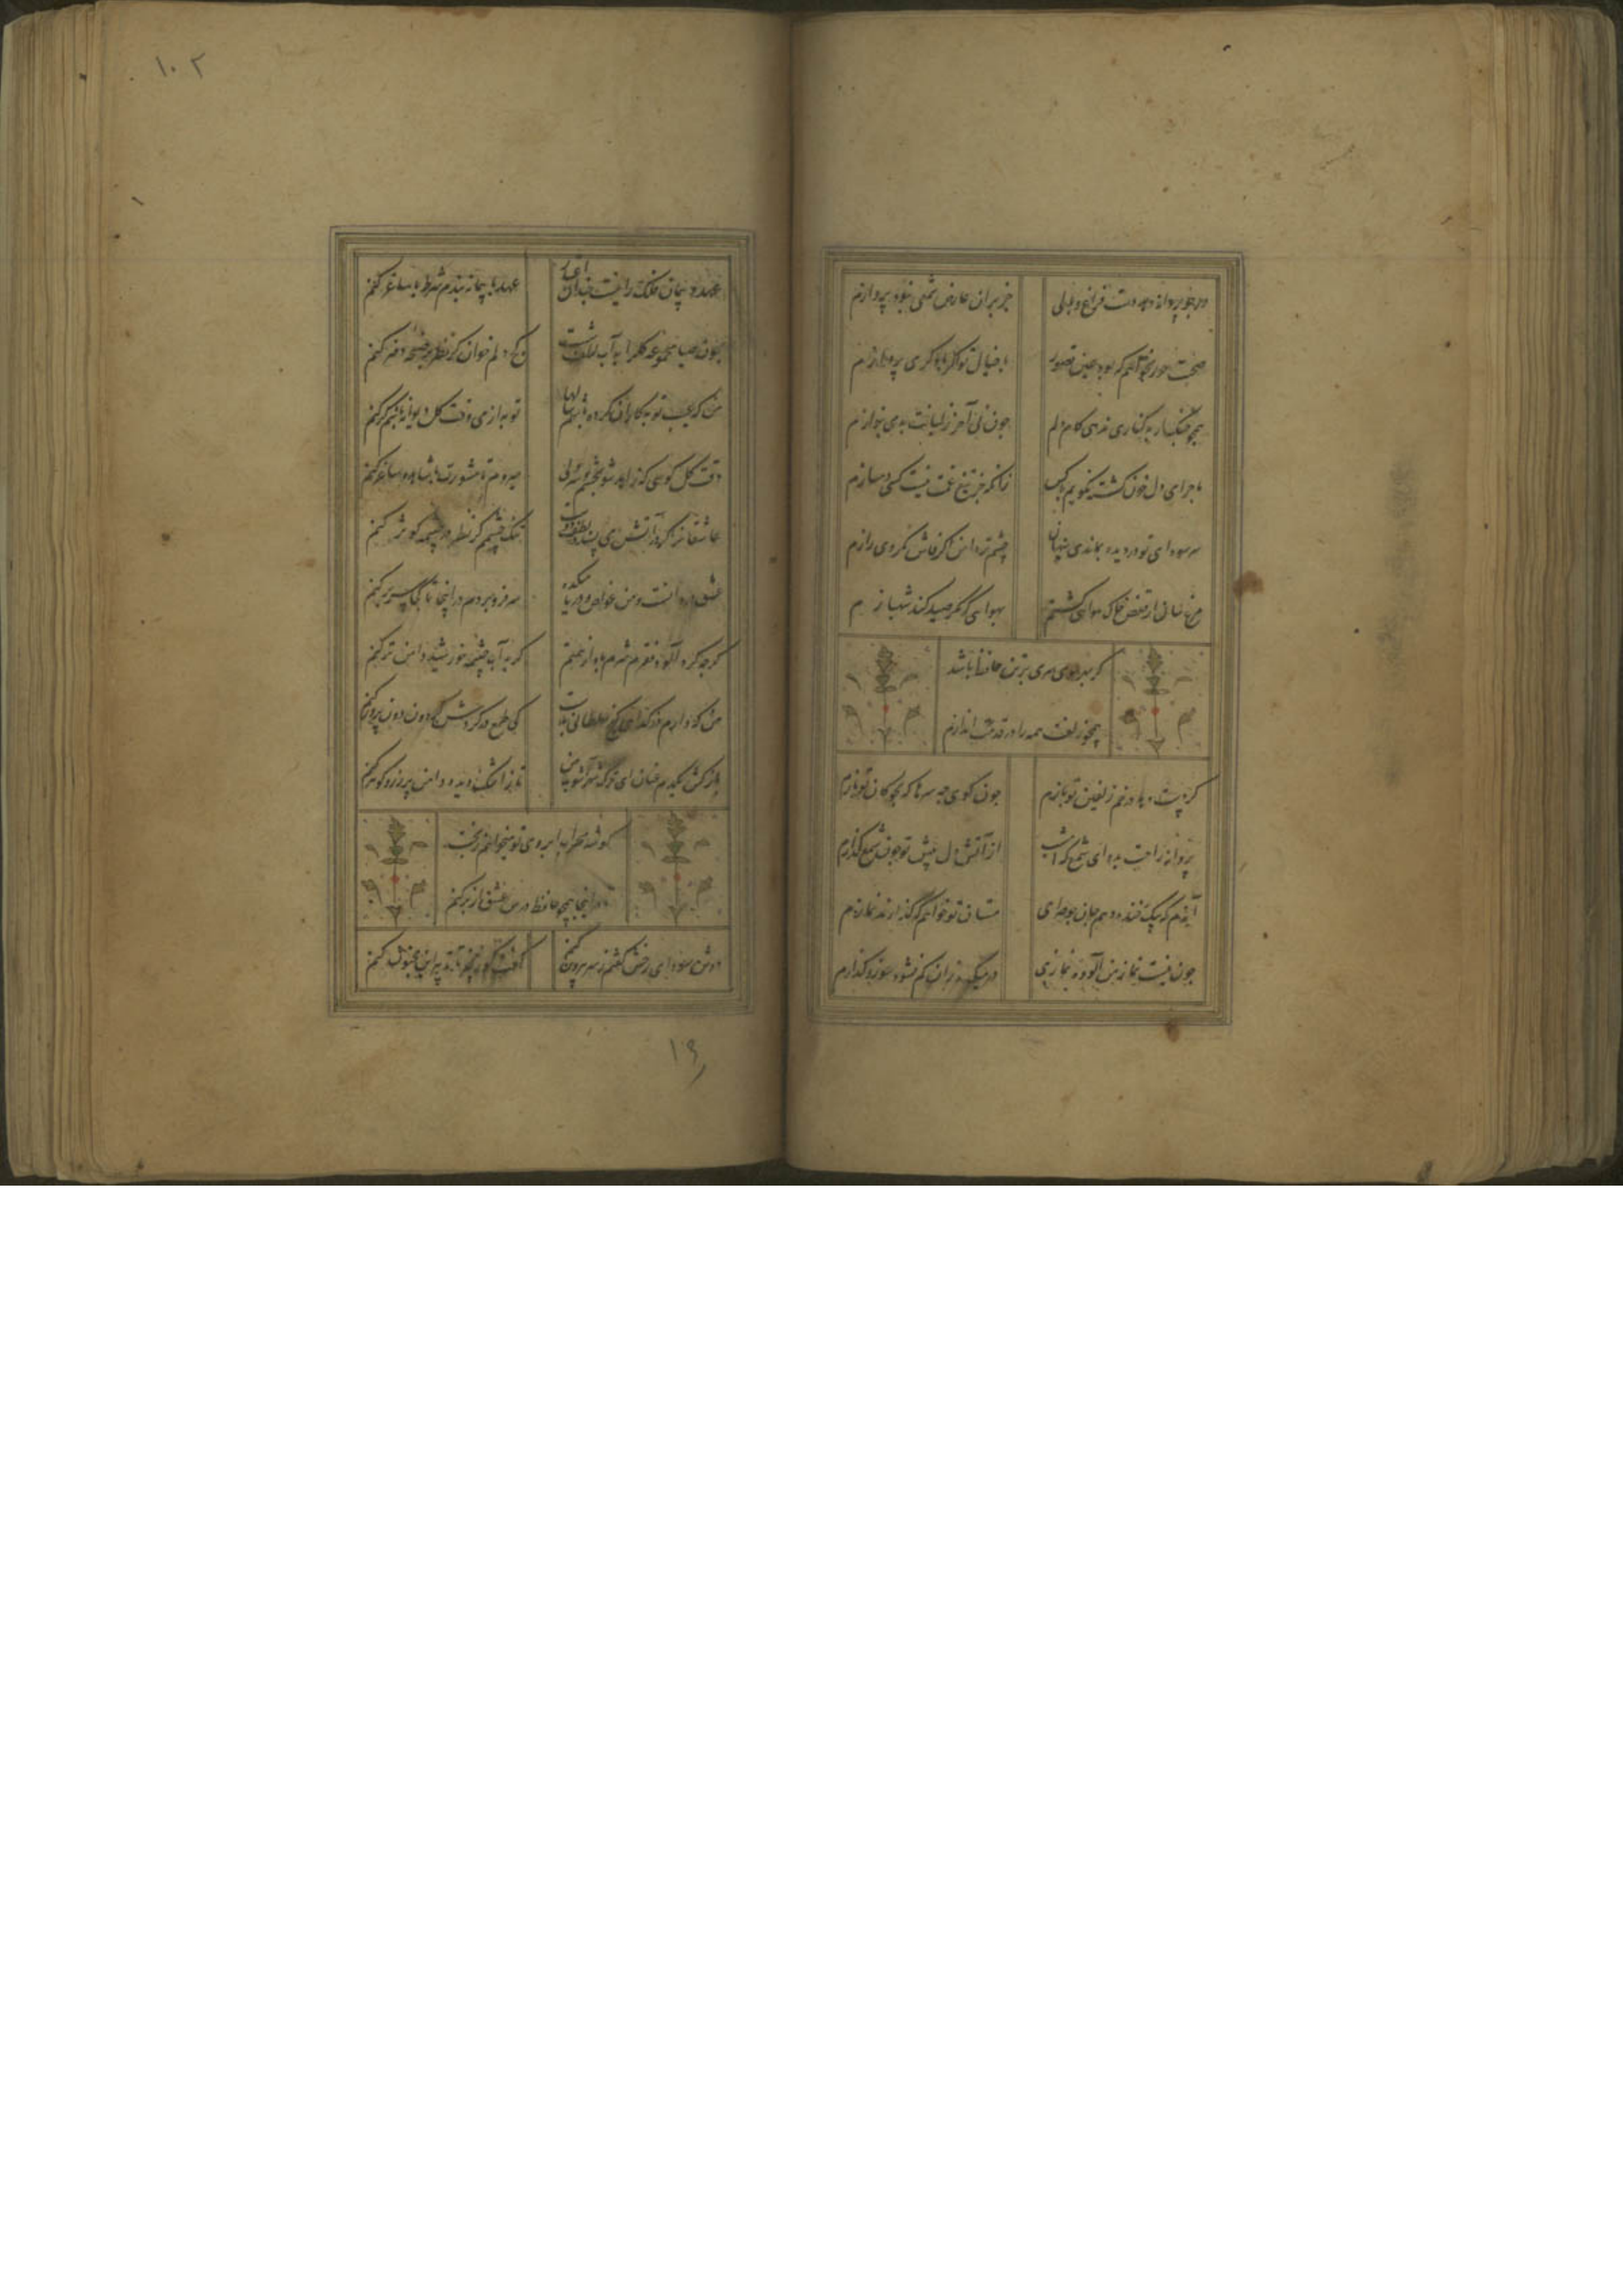 ور چو پروانه دهد دست فراغ و بالی
جز بران عارض شمعی نبود پروازم
صحبت حور نخواهم که بود عین قصور
با خیال تو اگر با دگری پردازم
همچو چنگ ار به کناری ندهی کام دلم
چون نی آخر ز لبانت بدمی بنوازم
ماجرای دل خون گشته نگویم با کس
زانکه جز تیغ غمت نیست کسی دمسازم
سر سودای تو در دیده بماندی پنهان
چشم تر دامن اگر فاش نکردی رازم
مرغ سان از قفس خاک هوایی گشتم
بهوایی که مگر صید کند شهبازم
گر بهر موی سری بر تن حافظ باشد
همچو زلفت همه را در قدمت اندازم
گر دست دهد در خم زلفین تو بازم
چون گوی چه سرها که بچوگان تو بازم
پروانه راحت بده ای شمع که امشب
از آتش دل پیش تو چون شمع گدازم
آندم که بیک خنده دهم جان چو صراحی
مستان تو خواهم که گذارند نمازم
چون نیست نماز من آلوده نمازی
در میکده زان کم نشود سوز و گدازم
۱۰۲
عهد و پیمان فلک را نیست چندان اعتبار
عهد با پیمانه بندم شرط با ساغر کنم
چون صبا مجموعه گل را به آب لطف شست
کج دلم خوان گر نظر بر صفحه دفتر کنم
من که عیب توبه کاران کرده باشم سالها
توبه از می وقت گل دیوانه باشم گر کنم
وقت گل گویی که زاهد شو بچشم و سر ولی
میروم تا مشورت با شاهد و ساغر کنم
عاشقان را گر در آتش می پسندد لطف دوست
تنگ چشمم گر نظر در چشمه کوثر کنم
عشق دردانه است و من غواص و دریا میکده
سر فرو بردم در اینجا تا کجا سر بر کنم
گرچه گرد آلود فقرم شرم باد از همتم
گر به آب چشمه خورشید دامن تر کنم
من که دارم در گدایی گنج سلطانی بدست
کی طمع در گردش گردون دون پرور کنم
باز کش یکدم عنان ای ترک شهر آشوب من
تا ز اشک دیده دامن پر زر و گوهر کنم
گوشه محراب ابروی تو میخواهم ز بخت
تا در انجا همچو حافظ درس عشق از بر کنم
دوش سودای رخش گفتم ز سر بیرون کنم
گفت کو زنجیر تا تدبیر این مجنون کنم